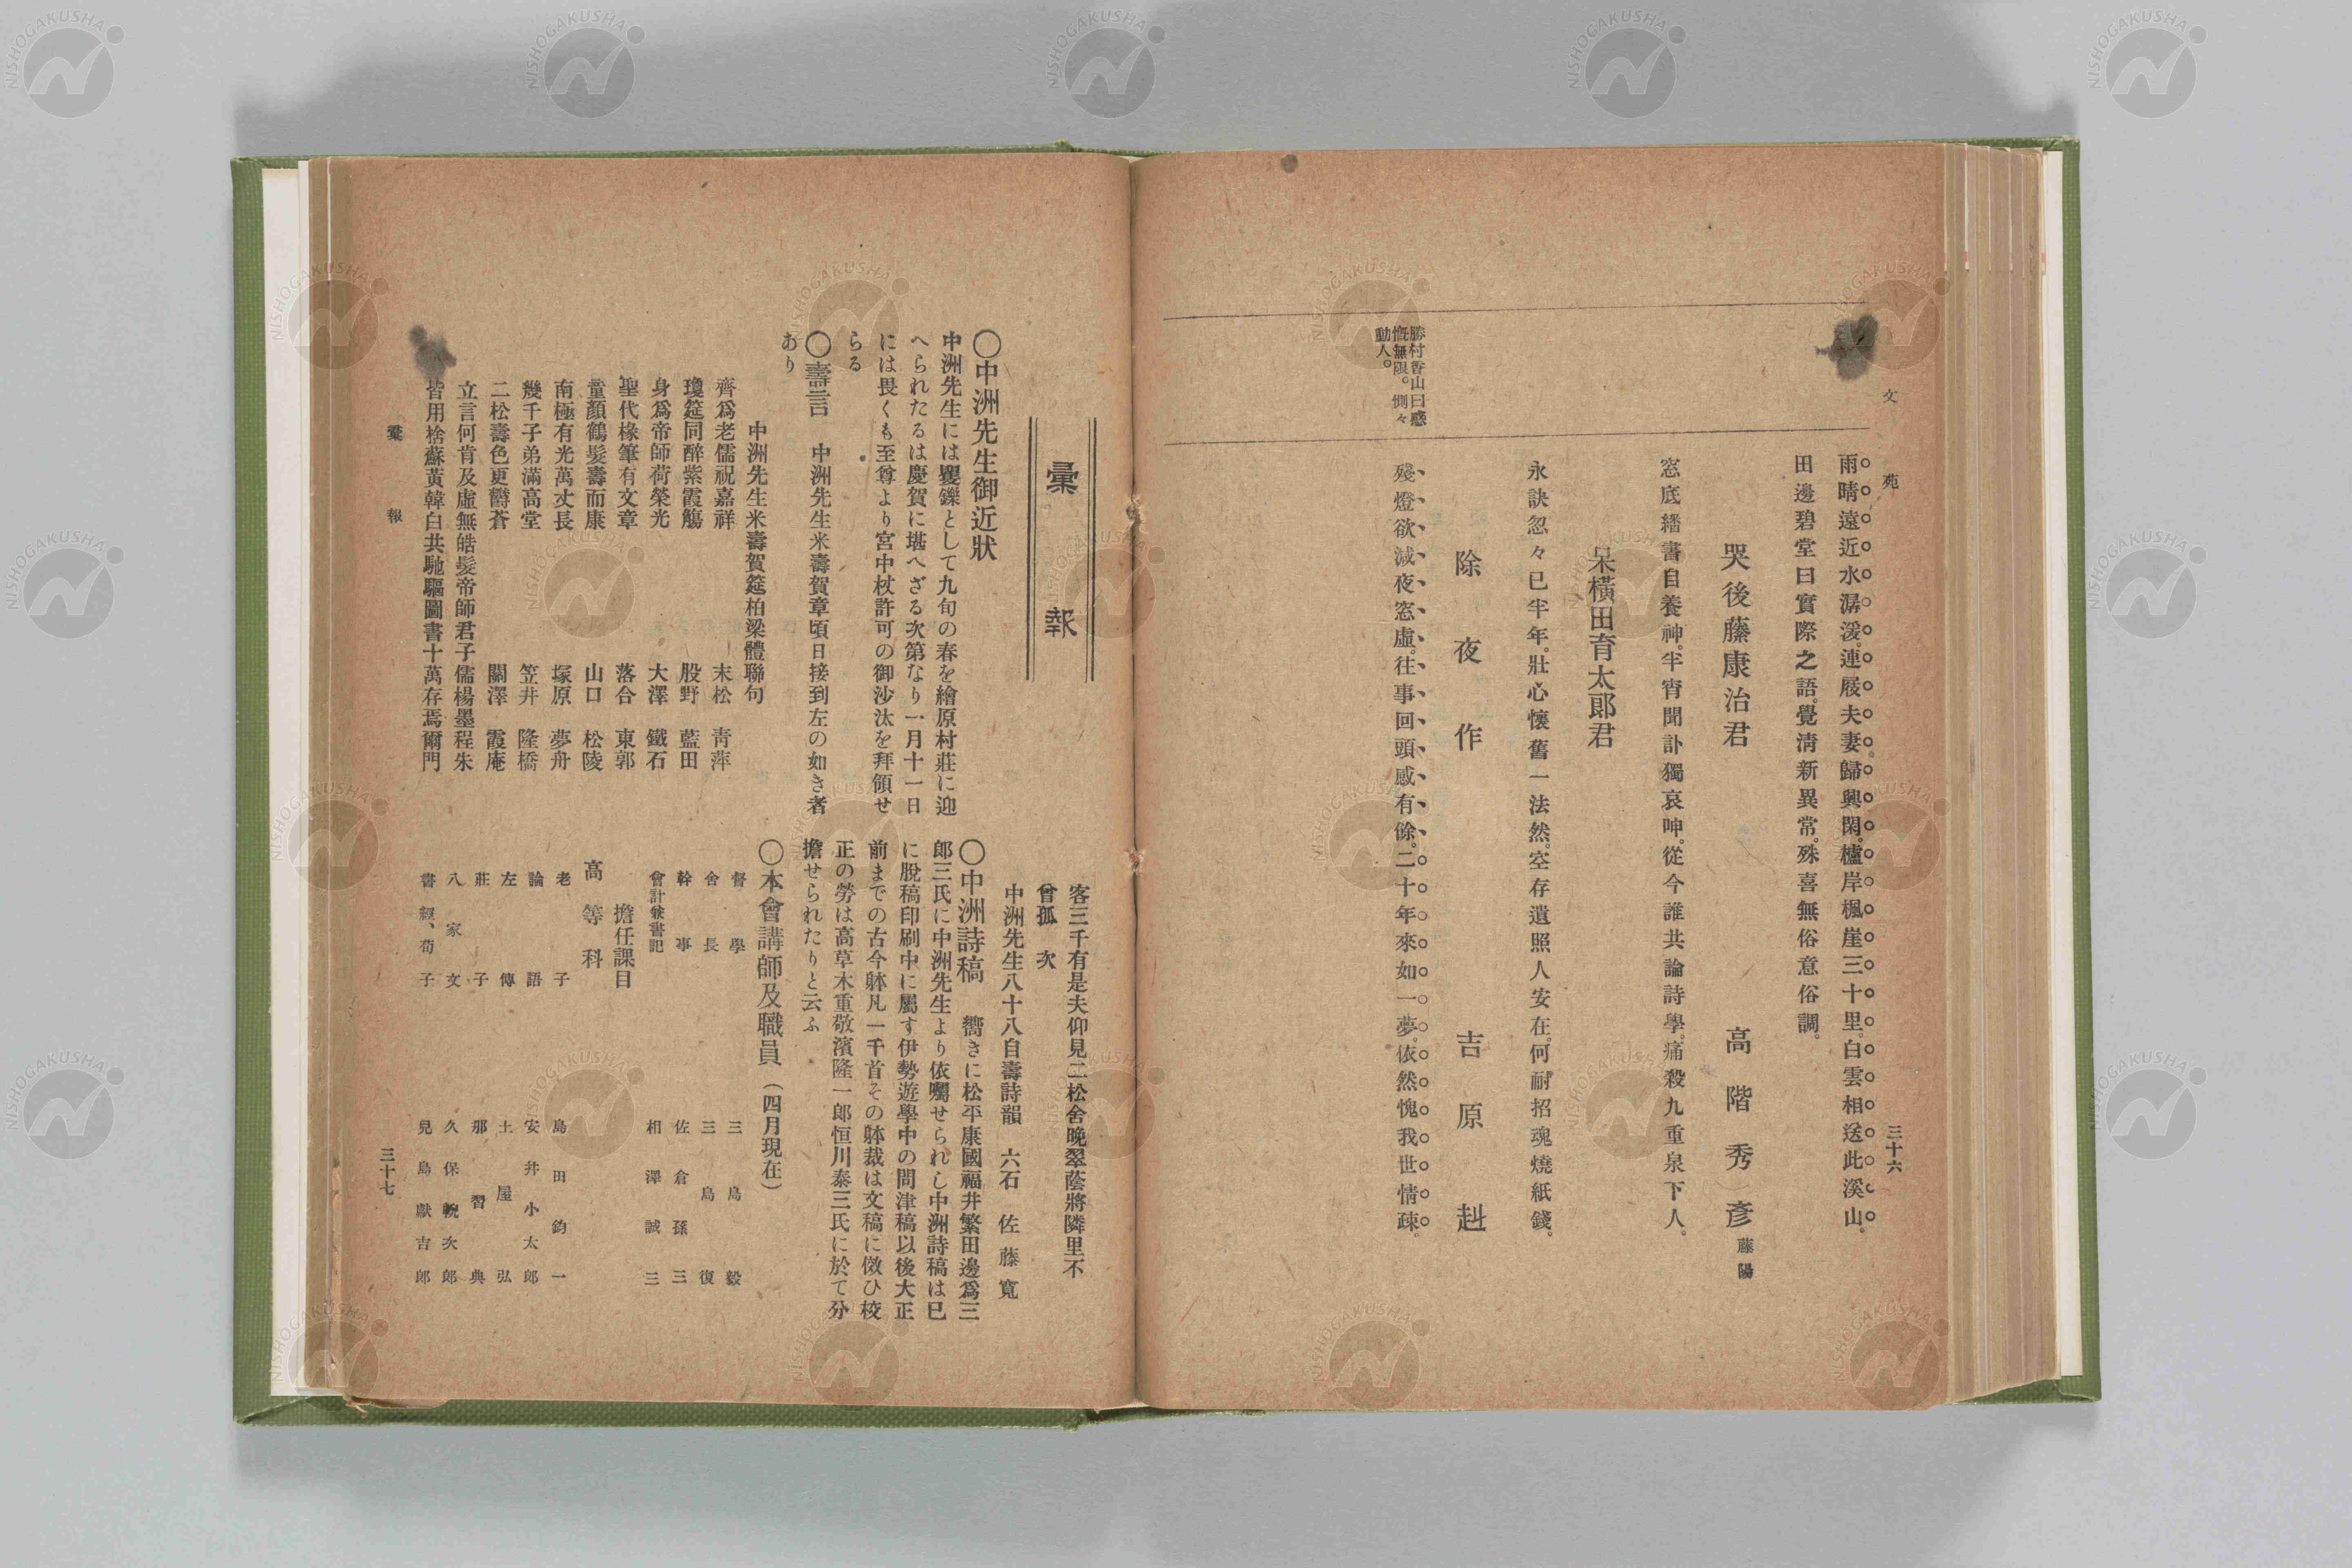 文苑
三十六
雨晴遠近水潺湲。連屐夫妻歸興閑。櫨岸楓崖三十里。白雲相送此溪山。
田邊碧堂曰實際之語。覺淸新異常。殊喜無俗意俗調。
哭後藤康治君
高階秀彥藤陽
窓底繙書自養神。半宵聞訃獨哀呻。從今誰共論詩學。痛殺九重泉下人。
呆橫田育太郞君
永訣忽々已半年。壯心懷舊一法然。空存遺照人安在。何耐招魂燒紙錢。
除夜作
吉原赳
勝村香山曰感
慨無限。惻々
動人。
殘燈欲滅夜窓虛。往事回頭感有餘。二十年來如一夢。依然愧我世情疎。
彙報
〇中洲先生御近狀
中洲先生には矍鑠として九旬の春を繪原村莊に迎
へられたるは慶賀に堪へざる次第なり一月十一日
には畏くも至尊より宮中杖許可の御沙汰を拜領せ
らる
〇壽言 中洲先生米壽賀章頃日接到左の如き者
あり
中洲先生米壽賀筵柏梁體聯句
齊爲老儒祝嘉祥 末松靑萍
瓊筵同醉紫霞觴 股野藍田
身爲帝師荷榮光 大澤鐵石
聖代椽筆有文章 落合東郭
童顏鶴髮壽而康 山口松陵
南極有光萬丈長 塚原夢舟
幾千子弟滿高堂 笠井隆橋
二松壽色更欝蒼 關澤霞庵
立言何肯及虛無皓髮帝師君子儒楊墨程朱
皆用捨蘇黃韓白共馳驅圖書十萬存焉爾門
客三千有是夫仰見二松舍晚翠蔭將隣里不
曾孤 次
中洲先生八十八自壽詩韻 六石 佐藤寬
〇中洲詩稿 嚮きに松平康國福井繁田邊爲三
郎三氏に中洲先生より依囑せられし中洲詩稿は已
に脫稿印刷中に屬す伊勢遊學中の問津稿以後大正
前までの古今躰凡一千首その躰裁は文稿に傚ひ校
正の勞は高草木重敬濱隆一郎恒川泰三氏に於て分
擔せられたりと云ふ
〇本會講師及職員(四月現在)
督學 三島毅
舍長 三島復
幹事 佐倉孫三
會計兼書記 相澤誠三
擔任課目
高等科
老子 島田鈞一
論語 安井小太郎
左傳 土屋弘
莊子 那習典
八家文 久保輗次郎
書經、荀子 見島獻吉郎
彙報
三十七